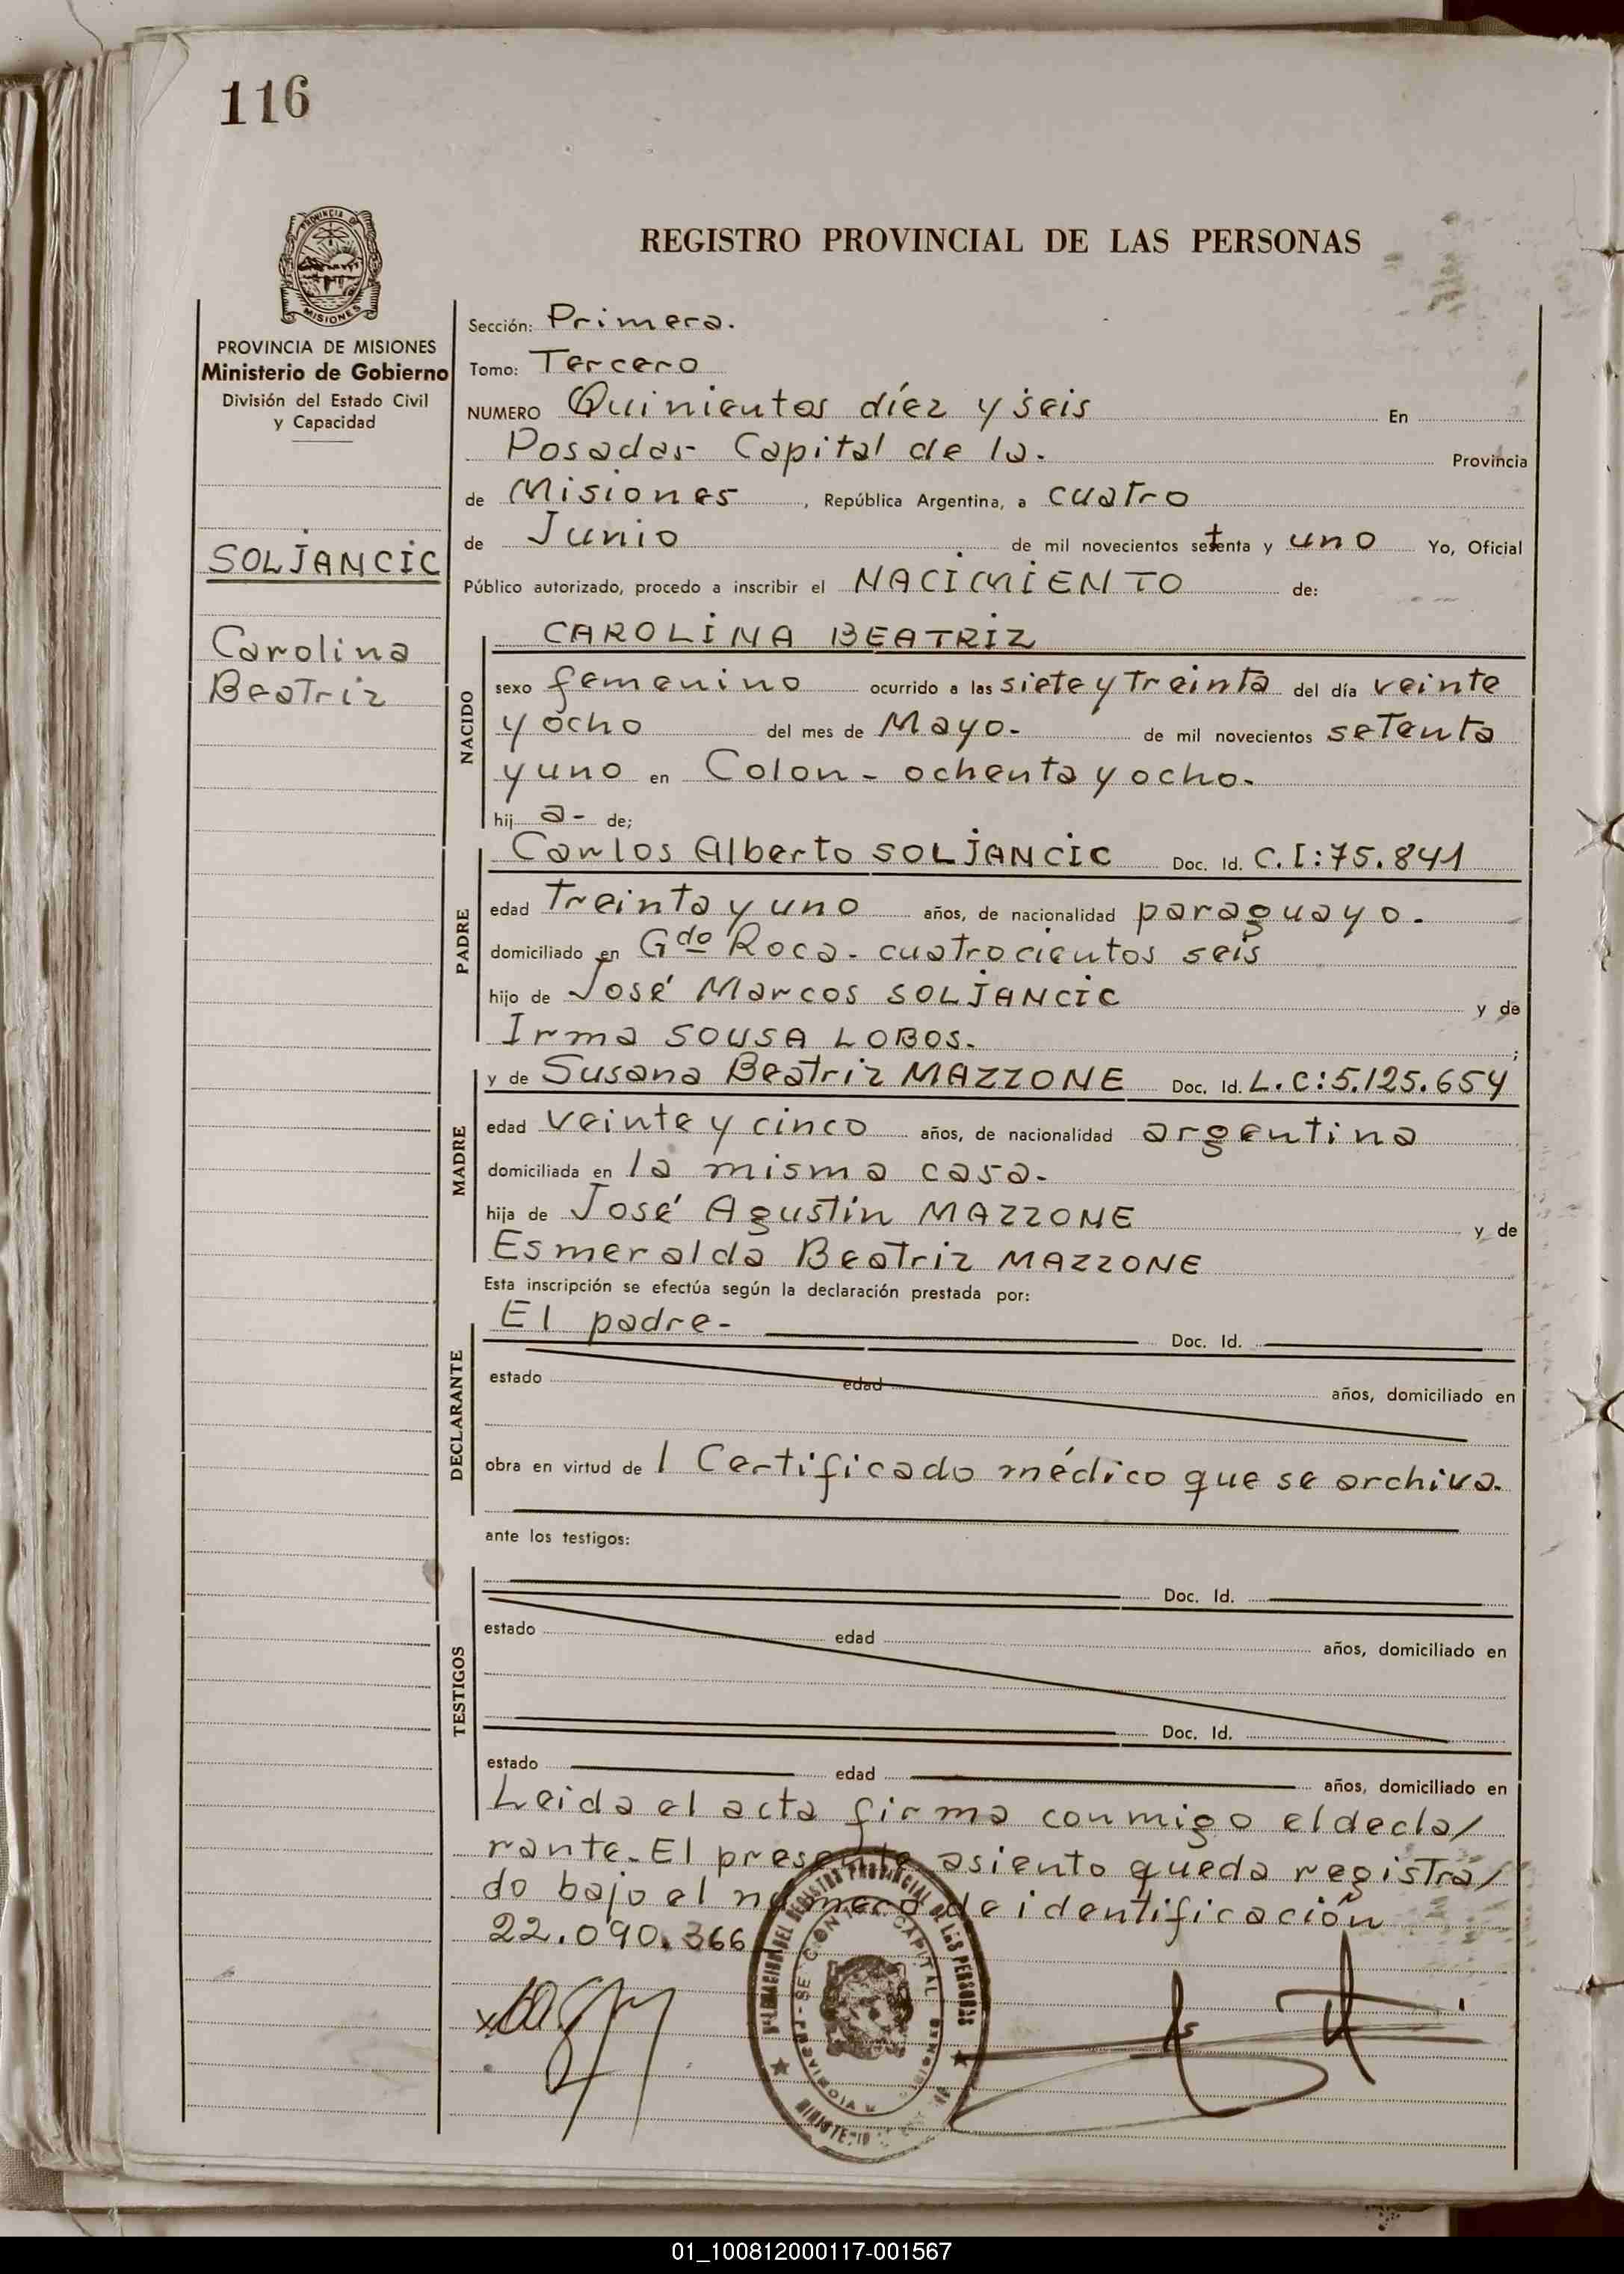 116
PROVINCIA DE
MISIONES
REGISTRO PROVINCIAL DE LAS PERSONAS
PROVINCIA DE MISIONES
Ministerio de Gobierno
División del Estado Civil
y Capacidad
SOLJANCIC
Carolina
Beatriz
Sección: Primera.
Tomo: Tercero
NUMERO Quinientos díez y seis En
Posadas- Capital de la. Provincia
de Misiones, República Argentina, a cuatro
de Junio de mil novecientos setenta y uno Yo, Oficial
Público autorizado, procedo a inscribir el NACIMIENTO de:
NACIDO
CAROLINA BEATRIZ
sexo femenino ocurrido a las siete y treinta del día veinte
y ocho del mes de Mayo. de mil novecientos setenta
y uno en Colon - ochenta y ocho.
hij a- de;
PADRE
Carlos Alberto SOLJANCIC Doc. Id. C.I:75.841
edad treinta y uno años, de nacionalidad paraguayo.
domiciliado en Gdo Roca. cuatrocientos seis
hijo de José Marcos SOLJANCIC y de
Irma SOUSA LOBOS. ;
MADRE
y de Susana Beatriz MAZZONE Doc. Id. L.C:5.125.654
edad veinte y cinco años, de nacionalidad argentina
domiciliada en la misma casa.
hija de José Agustin MAZZONE y de
Esmeralda Beatriz MAZZONE
Esta inscripción se efectúa según la declaración prestada por:
DECLARANTE
El padre- Doc. Id.
estado edad años, domiciliado en
obra en virtud de 1 Certificado médico que se archiva.
ante los testigos:
TESTIGOS
Doc. Id.
estado edad años, domiciliado en
Doc. Id.
estado edad años, domiciliado en
Leida el acta firma conmigo el decla/
rante. El presente asiento queda registra/
do bajo el número de identificación
22.090.366
DEL REGISTRO PROVINCIAL DE LAS PERSONAS
CAPITAL
01_100812000117-001567